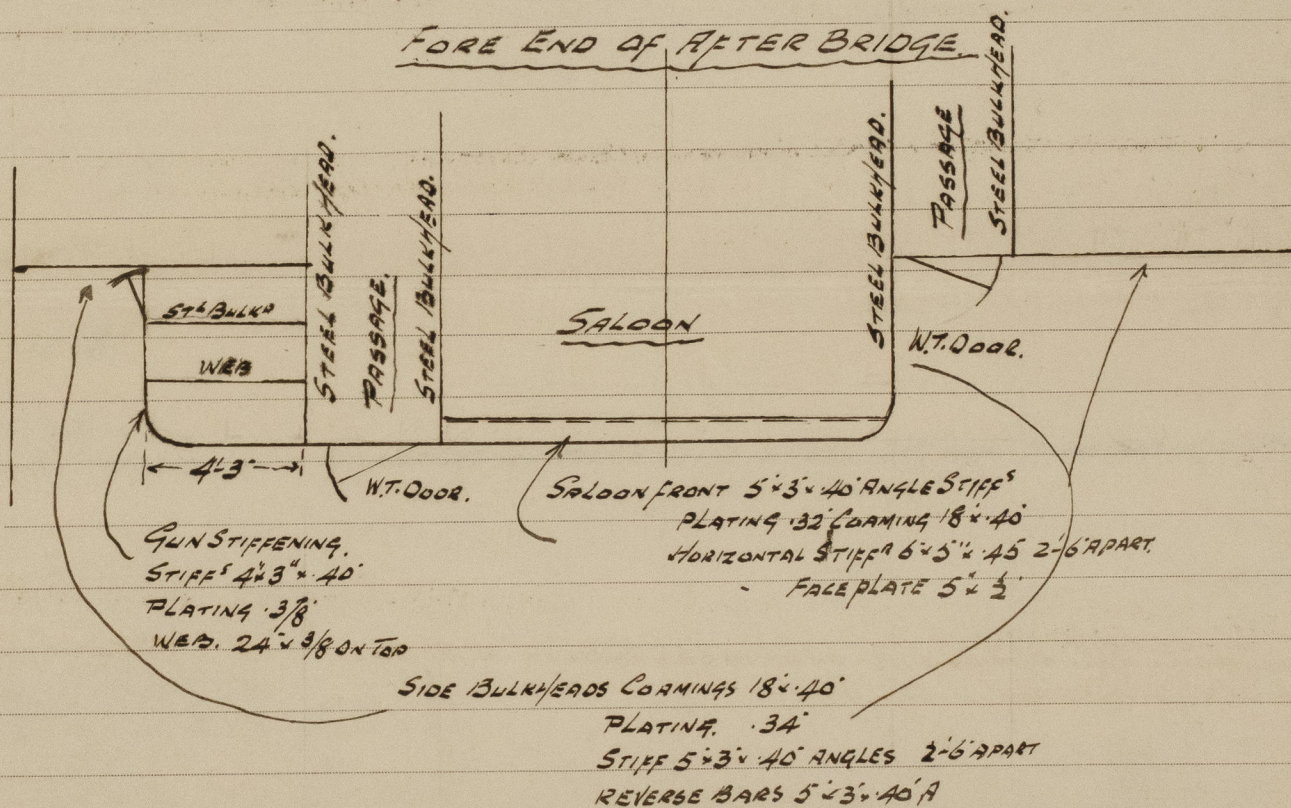 FORE END OF AFTER BRIDGE.
STEEL BULKHEAD.
PASSAGE
STEEL BULKHEAD.
STEEL BULKHEAD.
PASSAGE.
STEEL BULKHEAD.
STL BULKD
WEB
SALOON
W.T. DOOR.
4'-3"
W.T. DOOR.
SALOON FRONT 5"x3"x.40" ANGLE STIFFS
PLATING .32" COAMING 18"x.40"
HORIZONTAL STIFFR 6"x5"x.45 2'-6" APART.
FACE PLATE 5"x½"
GUN STIFFENING.
STIFFS 4"x3"x.40"
PLATING 3/8"
WEB. 24"x3/8 ON TOP
SIDE BULKHEADS COAMINGS 18"x.40"
PLATING. .34"
STIFF 5"x3"x.40" ANGLES 2'-6" APART
REVERSE BARS 5"x3"x.40" A